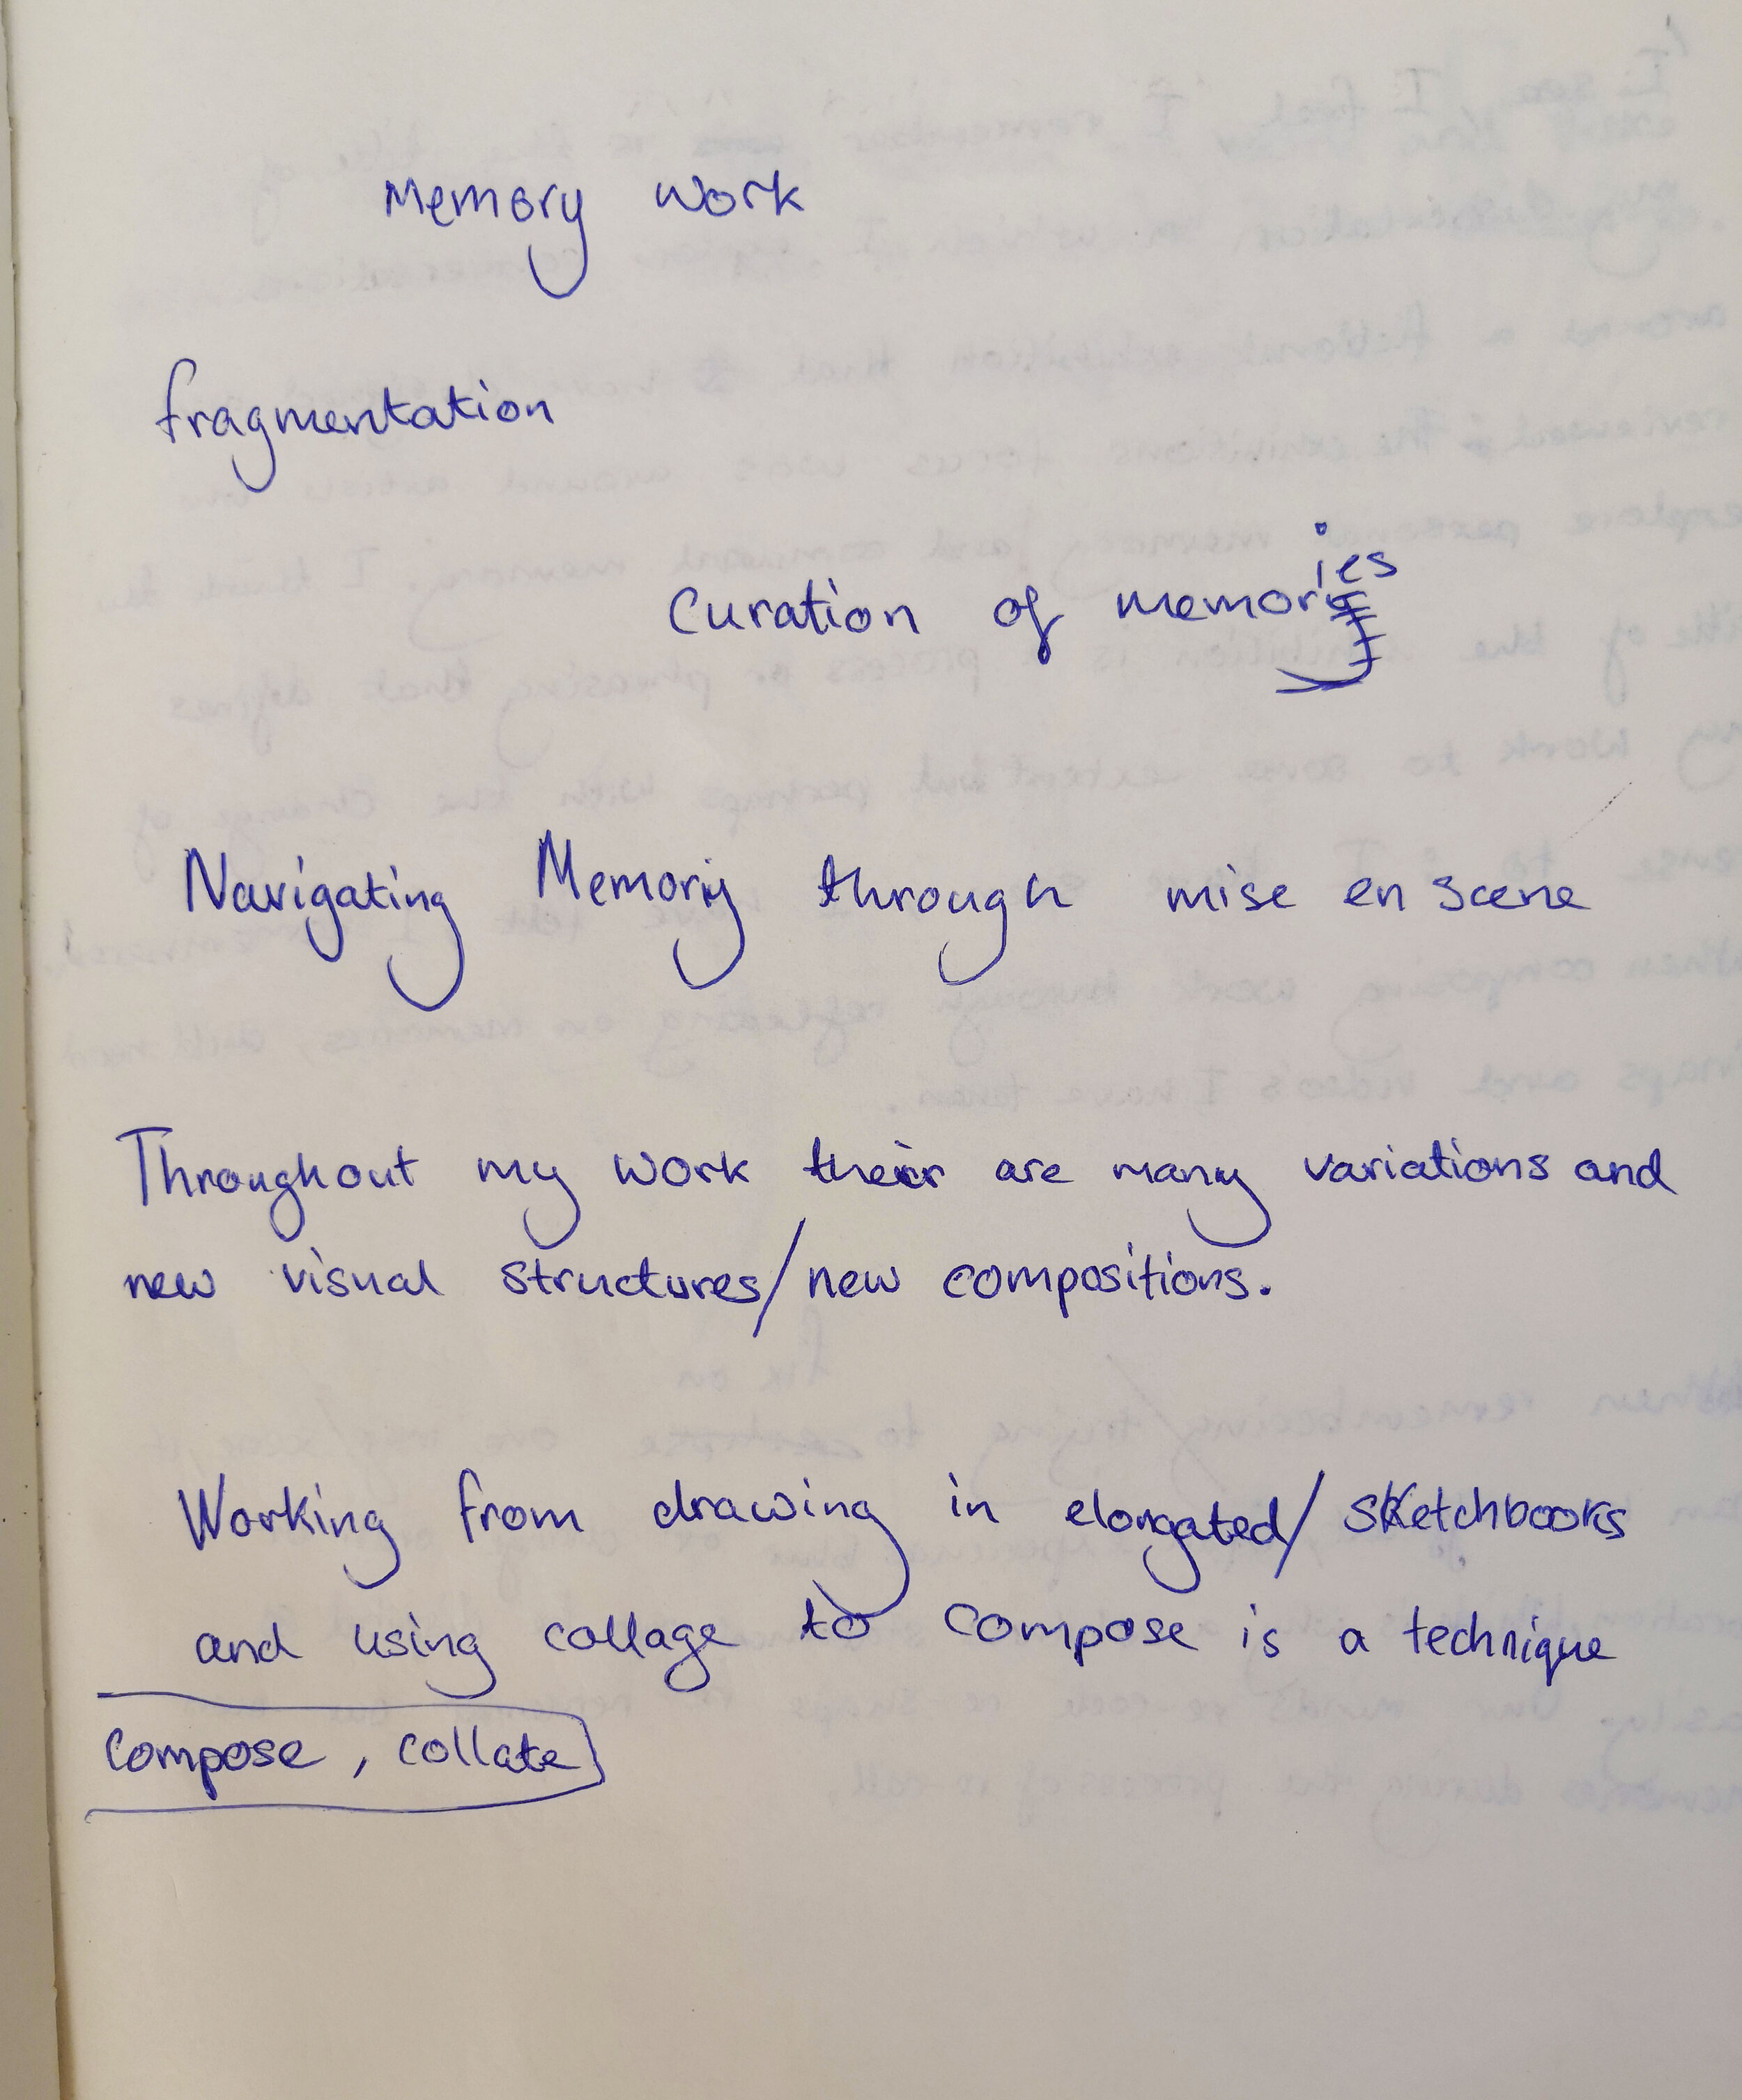 Memory work
fragmentation
Curation of memories
Navigating Memory through mise en scene
Throughout my work their are many variations and
new visual structures/new compositions.
Working from drawing in elongated/sketchbooks
and using collage to compose is a technique
Compose, collate